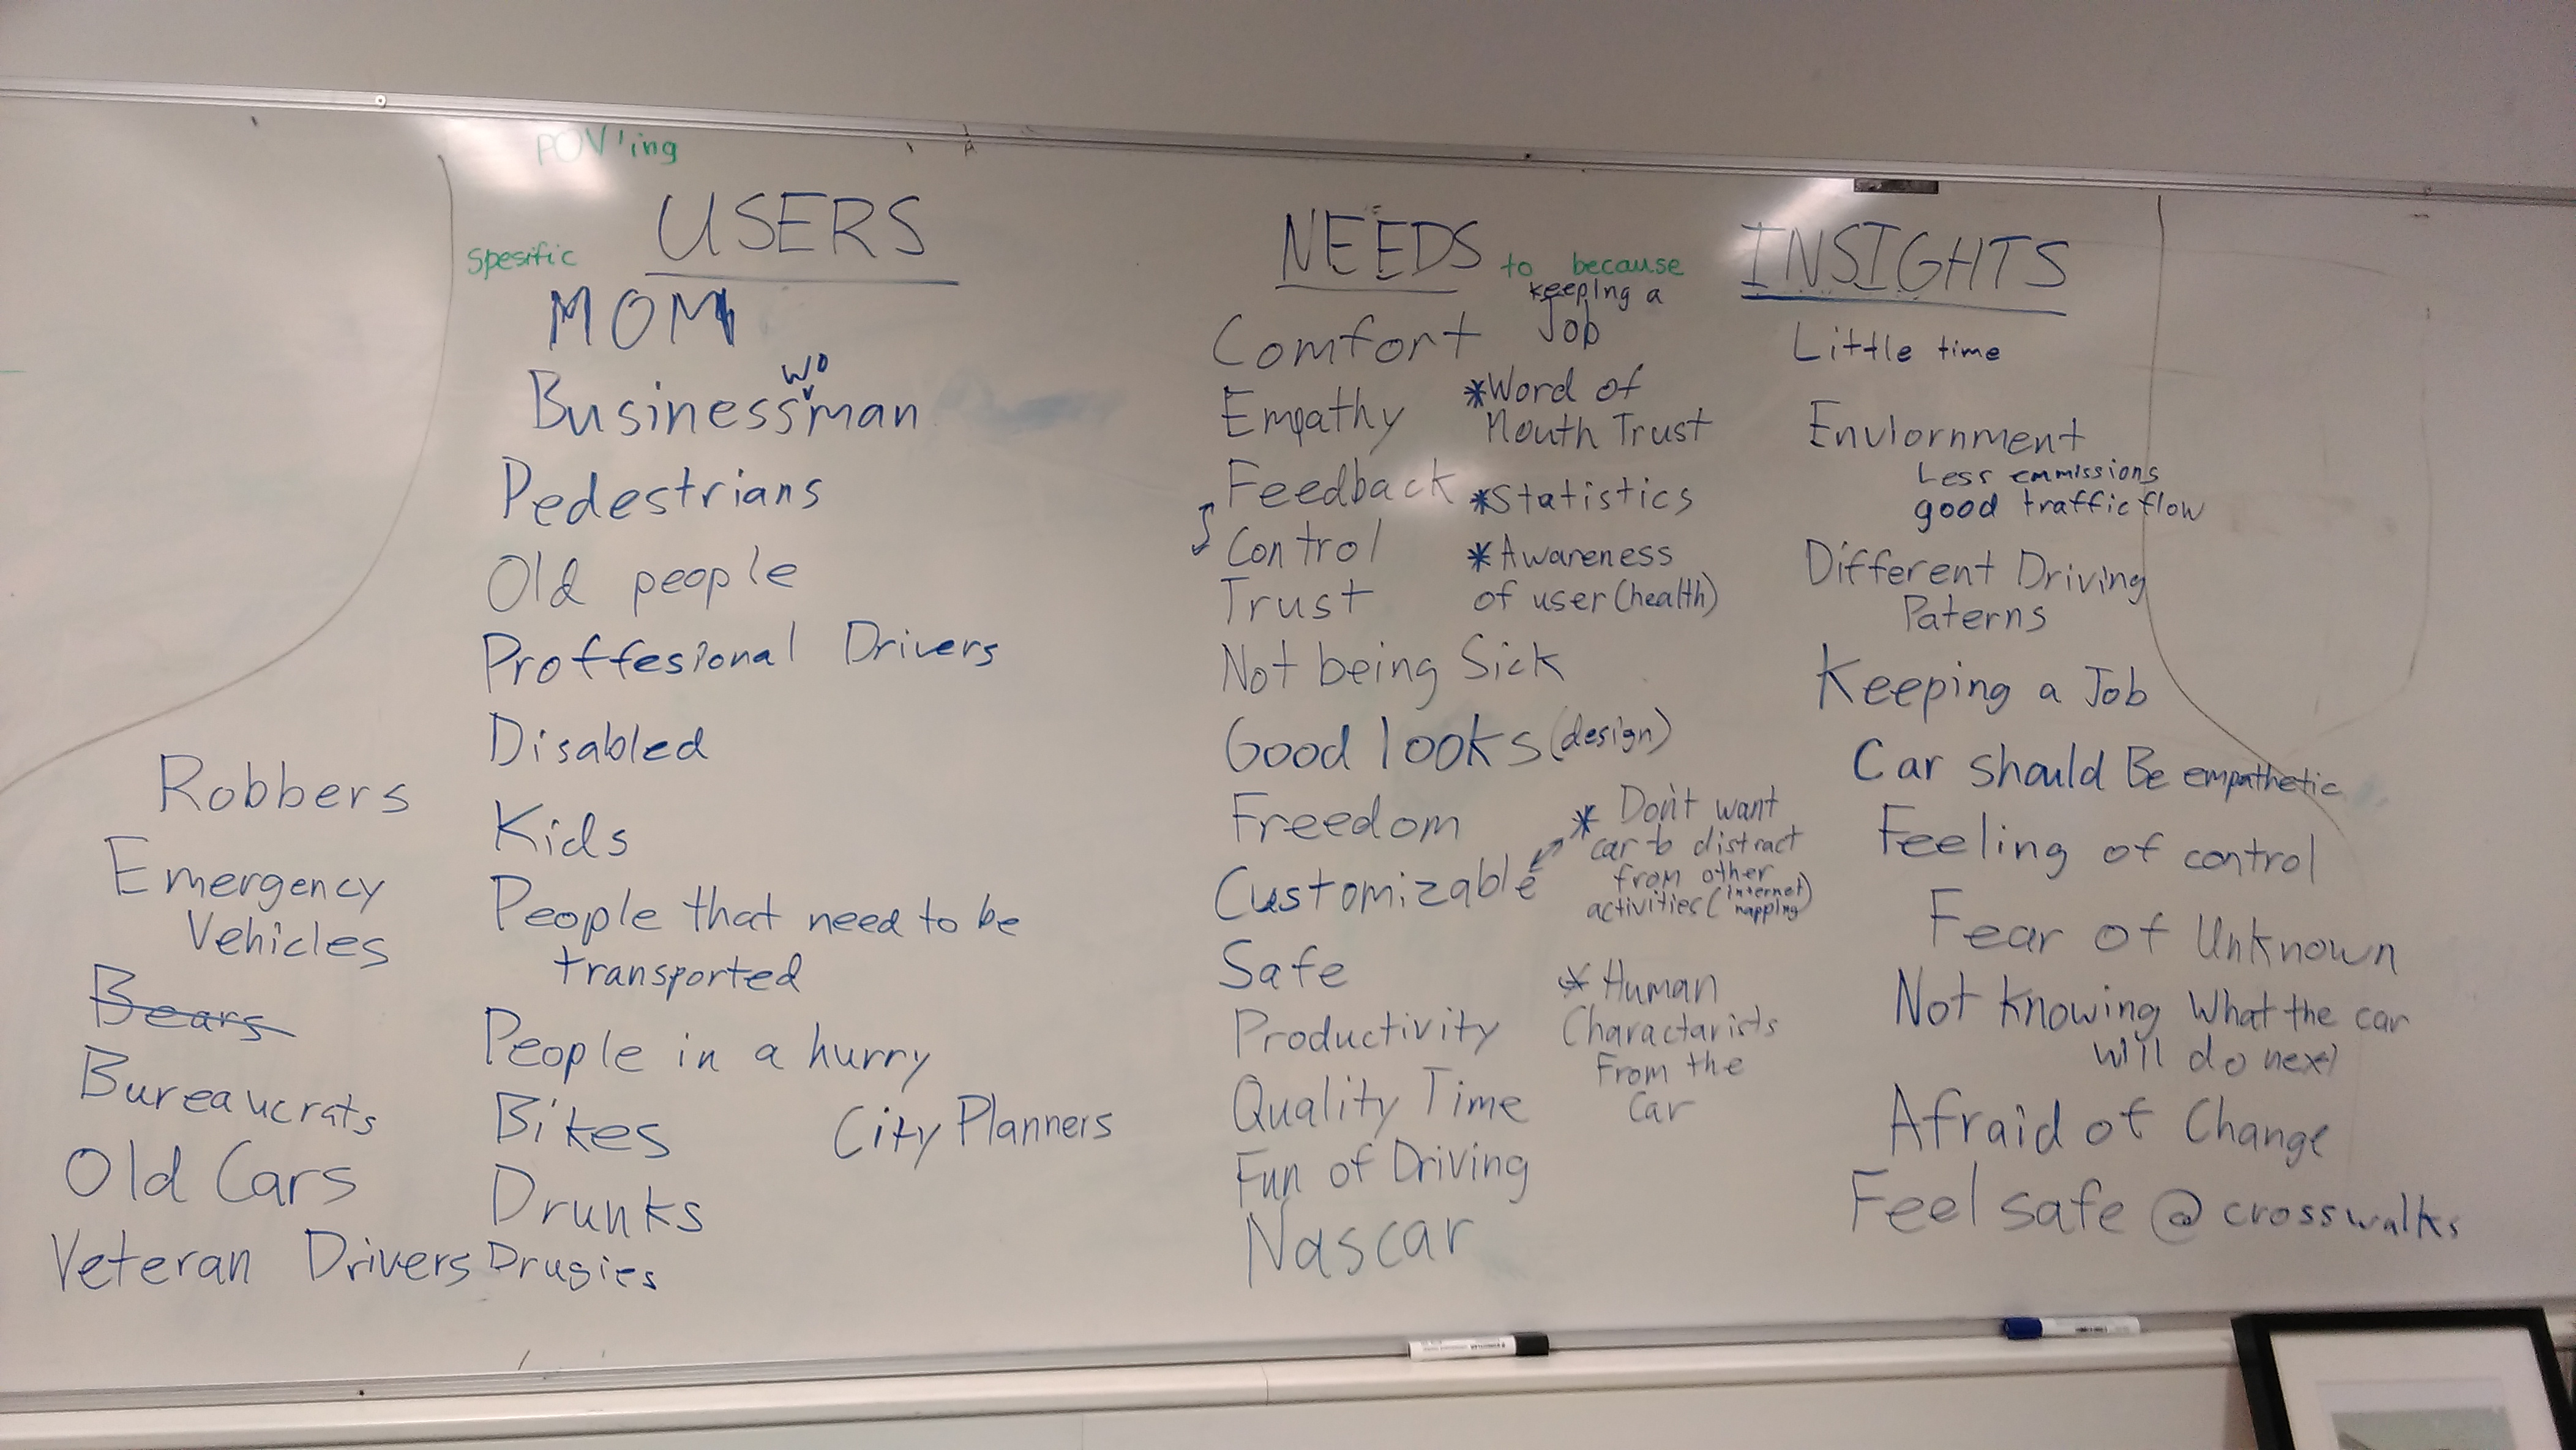 POV'ing
spesific
USERS
MOM
wo
Businessman
Pedestrians
Old people
Proffesional Drivers
Disabled
Kids
People that need to be
transported
People in a hurry
Bikes
City Planners
Drunks
Drugies
Robbers
Emergency
Vehicles
Bears
Bureaucrats
Old Cars
Veteran Drivers
NEEDS
to because
Comfort
Empathy
Feedback
Control
Trust
Not being Sick
Good looks (design)
Freedom
Customizable
Safe
Productivity
Quality Time
Fun of Driving
Nascar
keeping a
Job
*Word of
Mouth Trust
*Statistics
*Awareness
of user (health)
* Don't want
car to distract
from other
activities (internet
napping)
* Human
Charactarists
From the
Car
INSIGHTS
Little time
Enviornment
Less emmissions
good traffic flow
Different Driving
Paterns
Keeping a Job
Car should Be empathetic
Feeling of control
Fear of Unknown
Not knowing What the car
will do next
Afraid of Change
Feel safe @ crosswalks